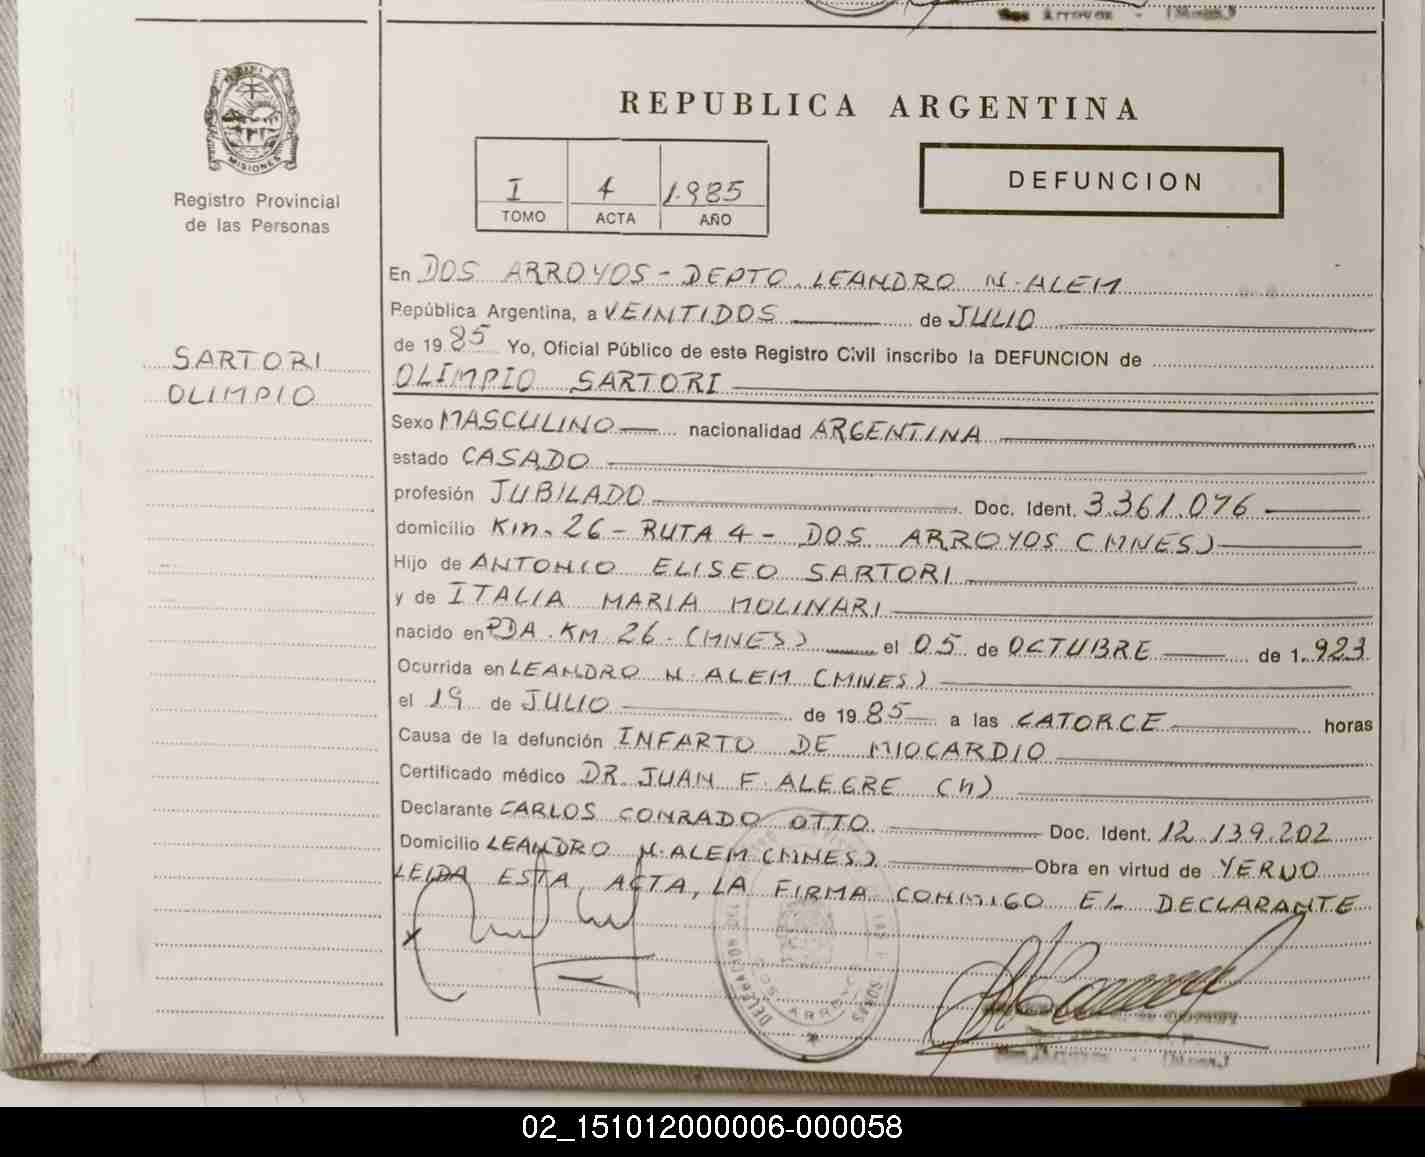 Dos Arroyos - (Mnes.)
MISIONES
Registro Provincial
de las Personas
SARTORI
OLIMPIO
REPUBLICA ARGENTINA
I 4 1.985
TOMO ACTA AÑO
DEFUNCION
En DOS ARROYOS - DEPTO. LEANDRO N. ALEM
República Argentina, a VEINTIDOS de JULIO
de 1985 Yo, Oficial Público de este Registro Civil inscribo la DEFUNCION de
OLIMPIO SARTORI
Sexo MASCULINO nacionalidad ARGENTINA
estado CASADO
profesión JUBILADO Doc. Ident. 3.361.076
domicilio Km. 26 - RUTA 4 - DOS ARROYOS (MNES)
Hijo de ANTONIO ELISEO SARTORI
y de ITALIA MARIA MOLINARI
nacido en PDA. KM 26. (MNES) el 05 de OCTUBRE de 1.923
Ocurrida en LEANDRO N. ALEM (MNES)
el 19 de JULIO de 1985 a las CATORCE horas
Causa de la defunción INFARTO DE MIOCARDIO
Certificado médico DR. JUAN F. ALEGRE (h)
Declarante CARLOS CONRADO OTTO Doc. Ident. 12.139.202
Domicilio LEANDRO N. ALEM (MNES) Obra en virtud de YERNO
LEIDA ESTA ACTA, LA FIRMA CONMIGO EL DECLARANTE
X
02_151012000006-000058